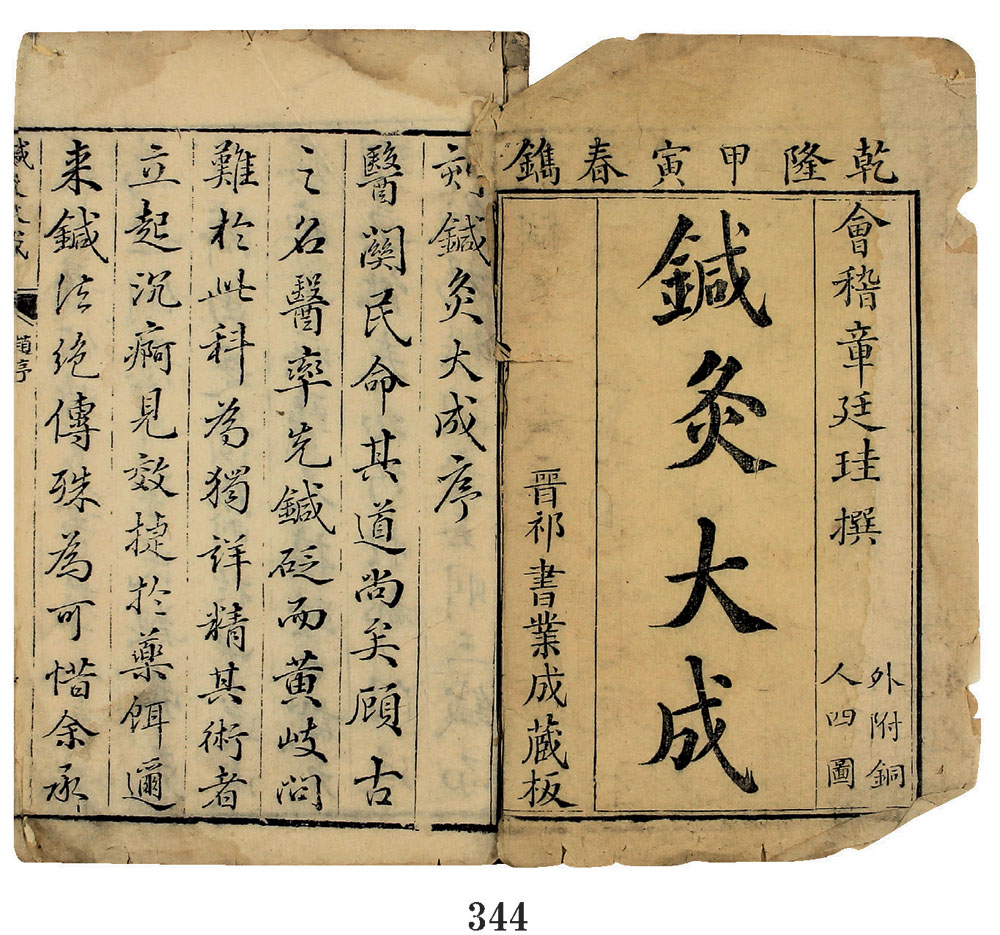 乾隆甲寅春鐫
會稽章廷珪撰
外附銅
人四圖
鍼灸大成
晉祁書業成蔵板
刻鍼灸大成序
醫闗民命其道尚矣顧古
之名醫率先鍼砭而黄岐問
難於此科為獨詳精其術者
立起沉痾見效捷於藥餌邇
来鍼法绝傳殊為可惜余承
鍼灸大成
趙序
344